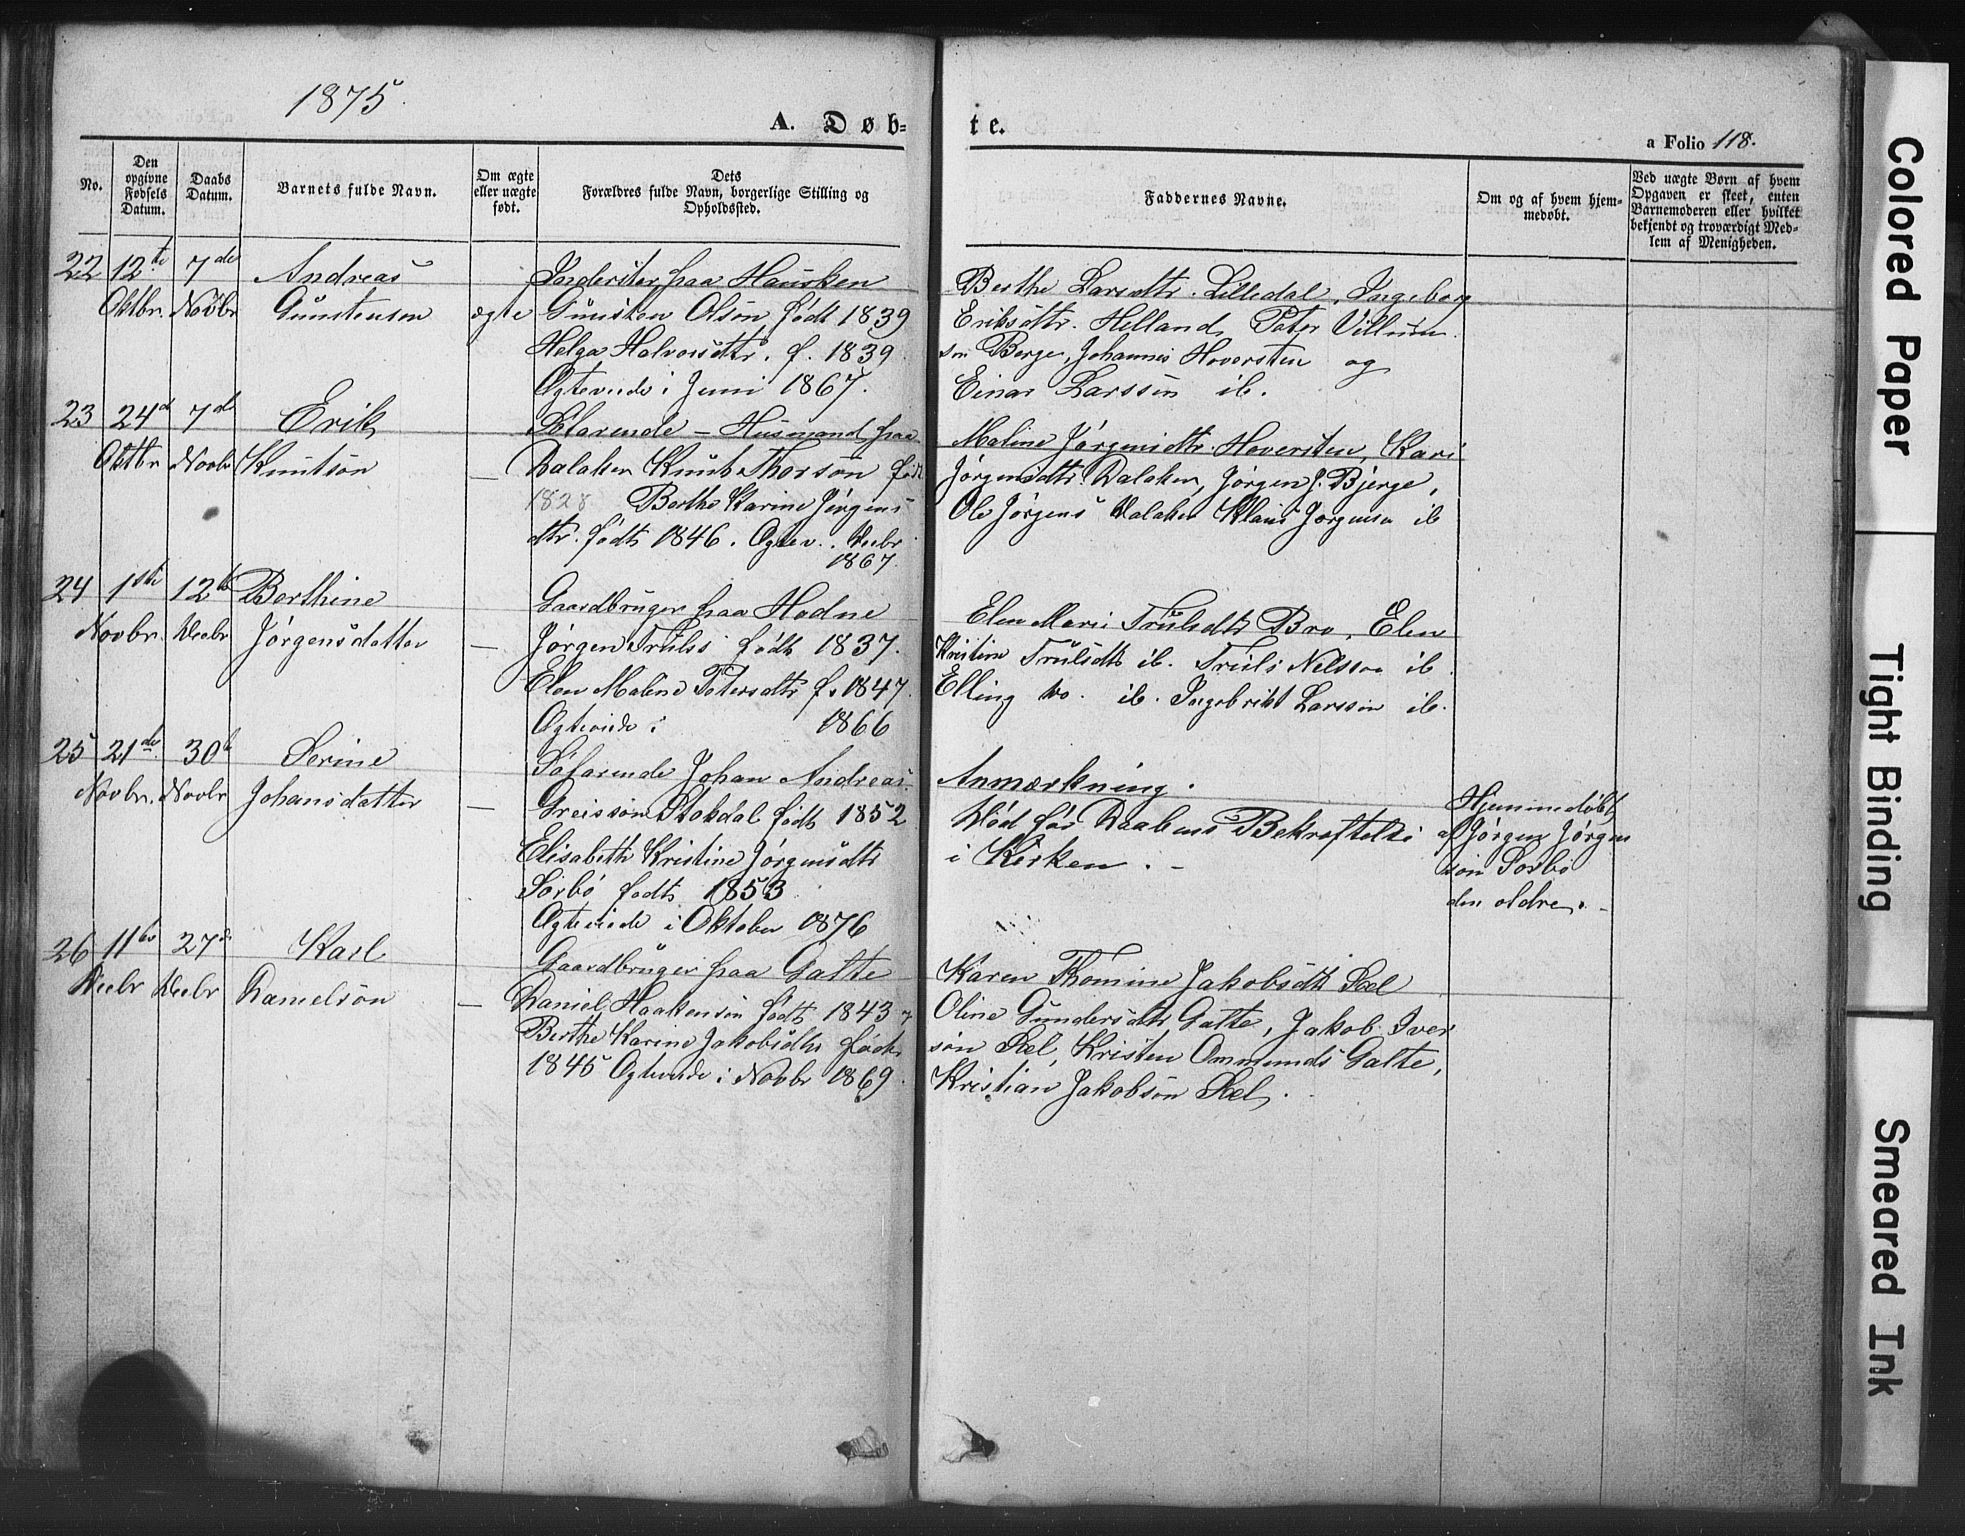 1875.
A. Døb-
te.
a Folio 118.
No.
Den opgivne Fødsels Datum.
Daabs Datum.
Barnets fulde Navn.
Om ægte eller uægte født.
Dets
Forældres fulde Navn, borgerlige Stilling og
Opholdssted.
Faddernes Navne.
Om og af hvem hjem-
medøbt.
Ved uægte Børn af hvem
Opgaven er skeet, enten
Barnemoderen eller hvilket
bekjendt og troværdigt Med-
lem af Menigheden.
22 12te 7de Andreas
Oktbr. Novbr Gunstensen ægte
Inderster fra Hausken
Gunsten Olsøn født 1839
Helga Halvorsdtr. f. 1839.
Ægteviede i Juni 1867.
Berthe Larsdtr. Lilledal, Ingeborg
Eriksdtr. Helland, Peter Villum
søn Berge, Johannes Hoversten og
Einar Larssøn ib.
23 24d 7de Erik
Oktbr Novbr Knutsøn —
Søfarende - Husmand fra
Dalaker Knut Thorsøn født
1828 Berthe Karine Jørgens
dtr. født 1846. Ægtev. Decbr
1867.
Maline Jørgensdtr. Hoversten, Kari
Jørgensdtr. Dalaker, Jørgen J. Bjerge,
Ole Jørgens Dalaker Klaus Jørgensen ib
24 1ste 12te Berthine
Novbr. Decbr Jørgensdatter —
Gaardbruger fra Hodne
Jørgen Trulss født 1837.
Elen Maline Petersdtr f. 1847.
Ægteviede i 1866
Elen Marie Trulsdtr Bro, Elen
Kristine Trulsdtr ib. Truls Nelsson ib
Elling do. ib. Ingebrikt Larssøn ib.
25 21de 30te Serine
Novbr. Novbr Johansdatter —
Søfarende Johan Andreas
Greissøn Stokdal født 1852
Elisabeth Kristine Jørgensdtr
Sørbø født 1853
Ægteviede i Oktober 1876
Anmærkning.
Død før Daabens Bekræftelse
i Kirken. -
Hjemmedøbt
af Jørgen Jørgen
søn Sørbø
den ældre. -
26 11te 27de Karl
Decbr Decbr Danielsøn —
Gaardbruger fra Galte
Daniel Haakensøn født 1843
Berthe Karine Jakobsdtr født
1845 Ægteviede i Novbr 1869.
Karen Thomine Jakobsdtr Sel
Oline Gundersdtr Galte, Jakob Iver
søn Sel, Kristen Ommunds Galte,
Kristian Jakobsøn Sel.
Colored Paper
Tight Binding
Smeared Ink